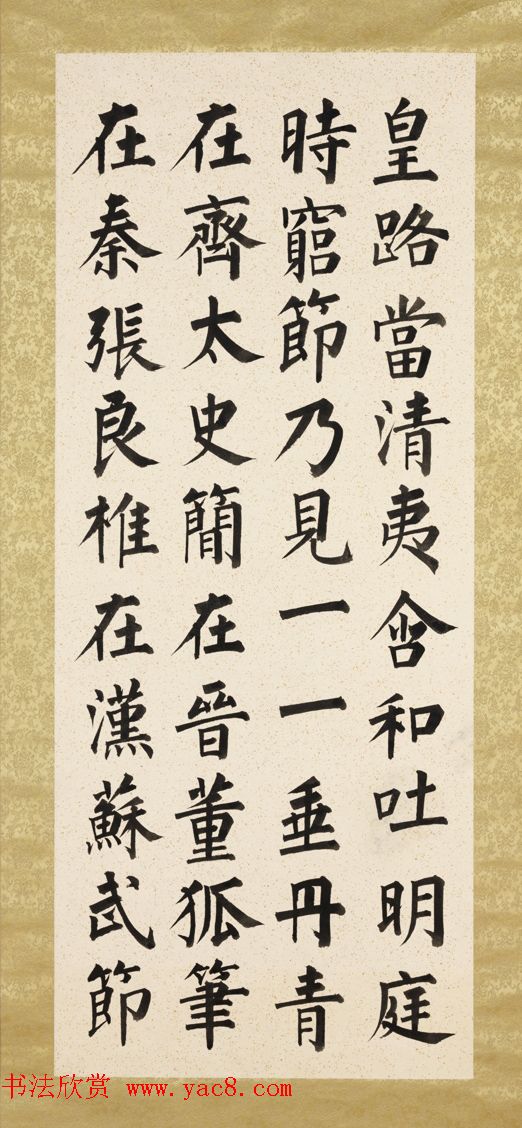 皇路當清夷含和吐明庭
時窮節乃見一一垂丹青
在齊太史簡在晉董狐筆
在秦張良椎在漢蘇武節
书法欣赏 www.yac8.com